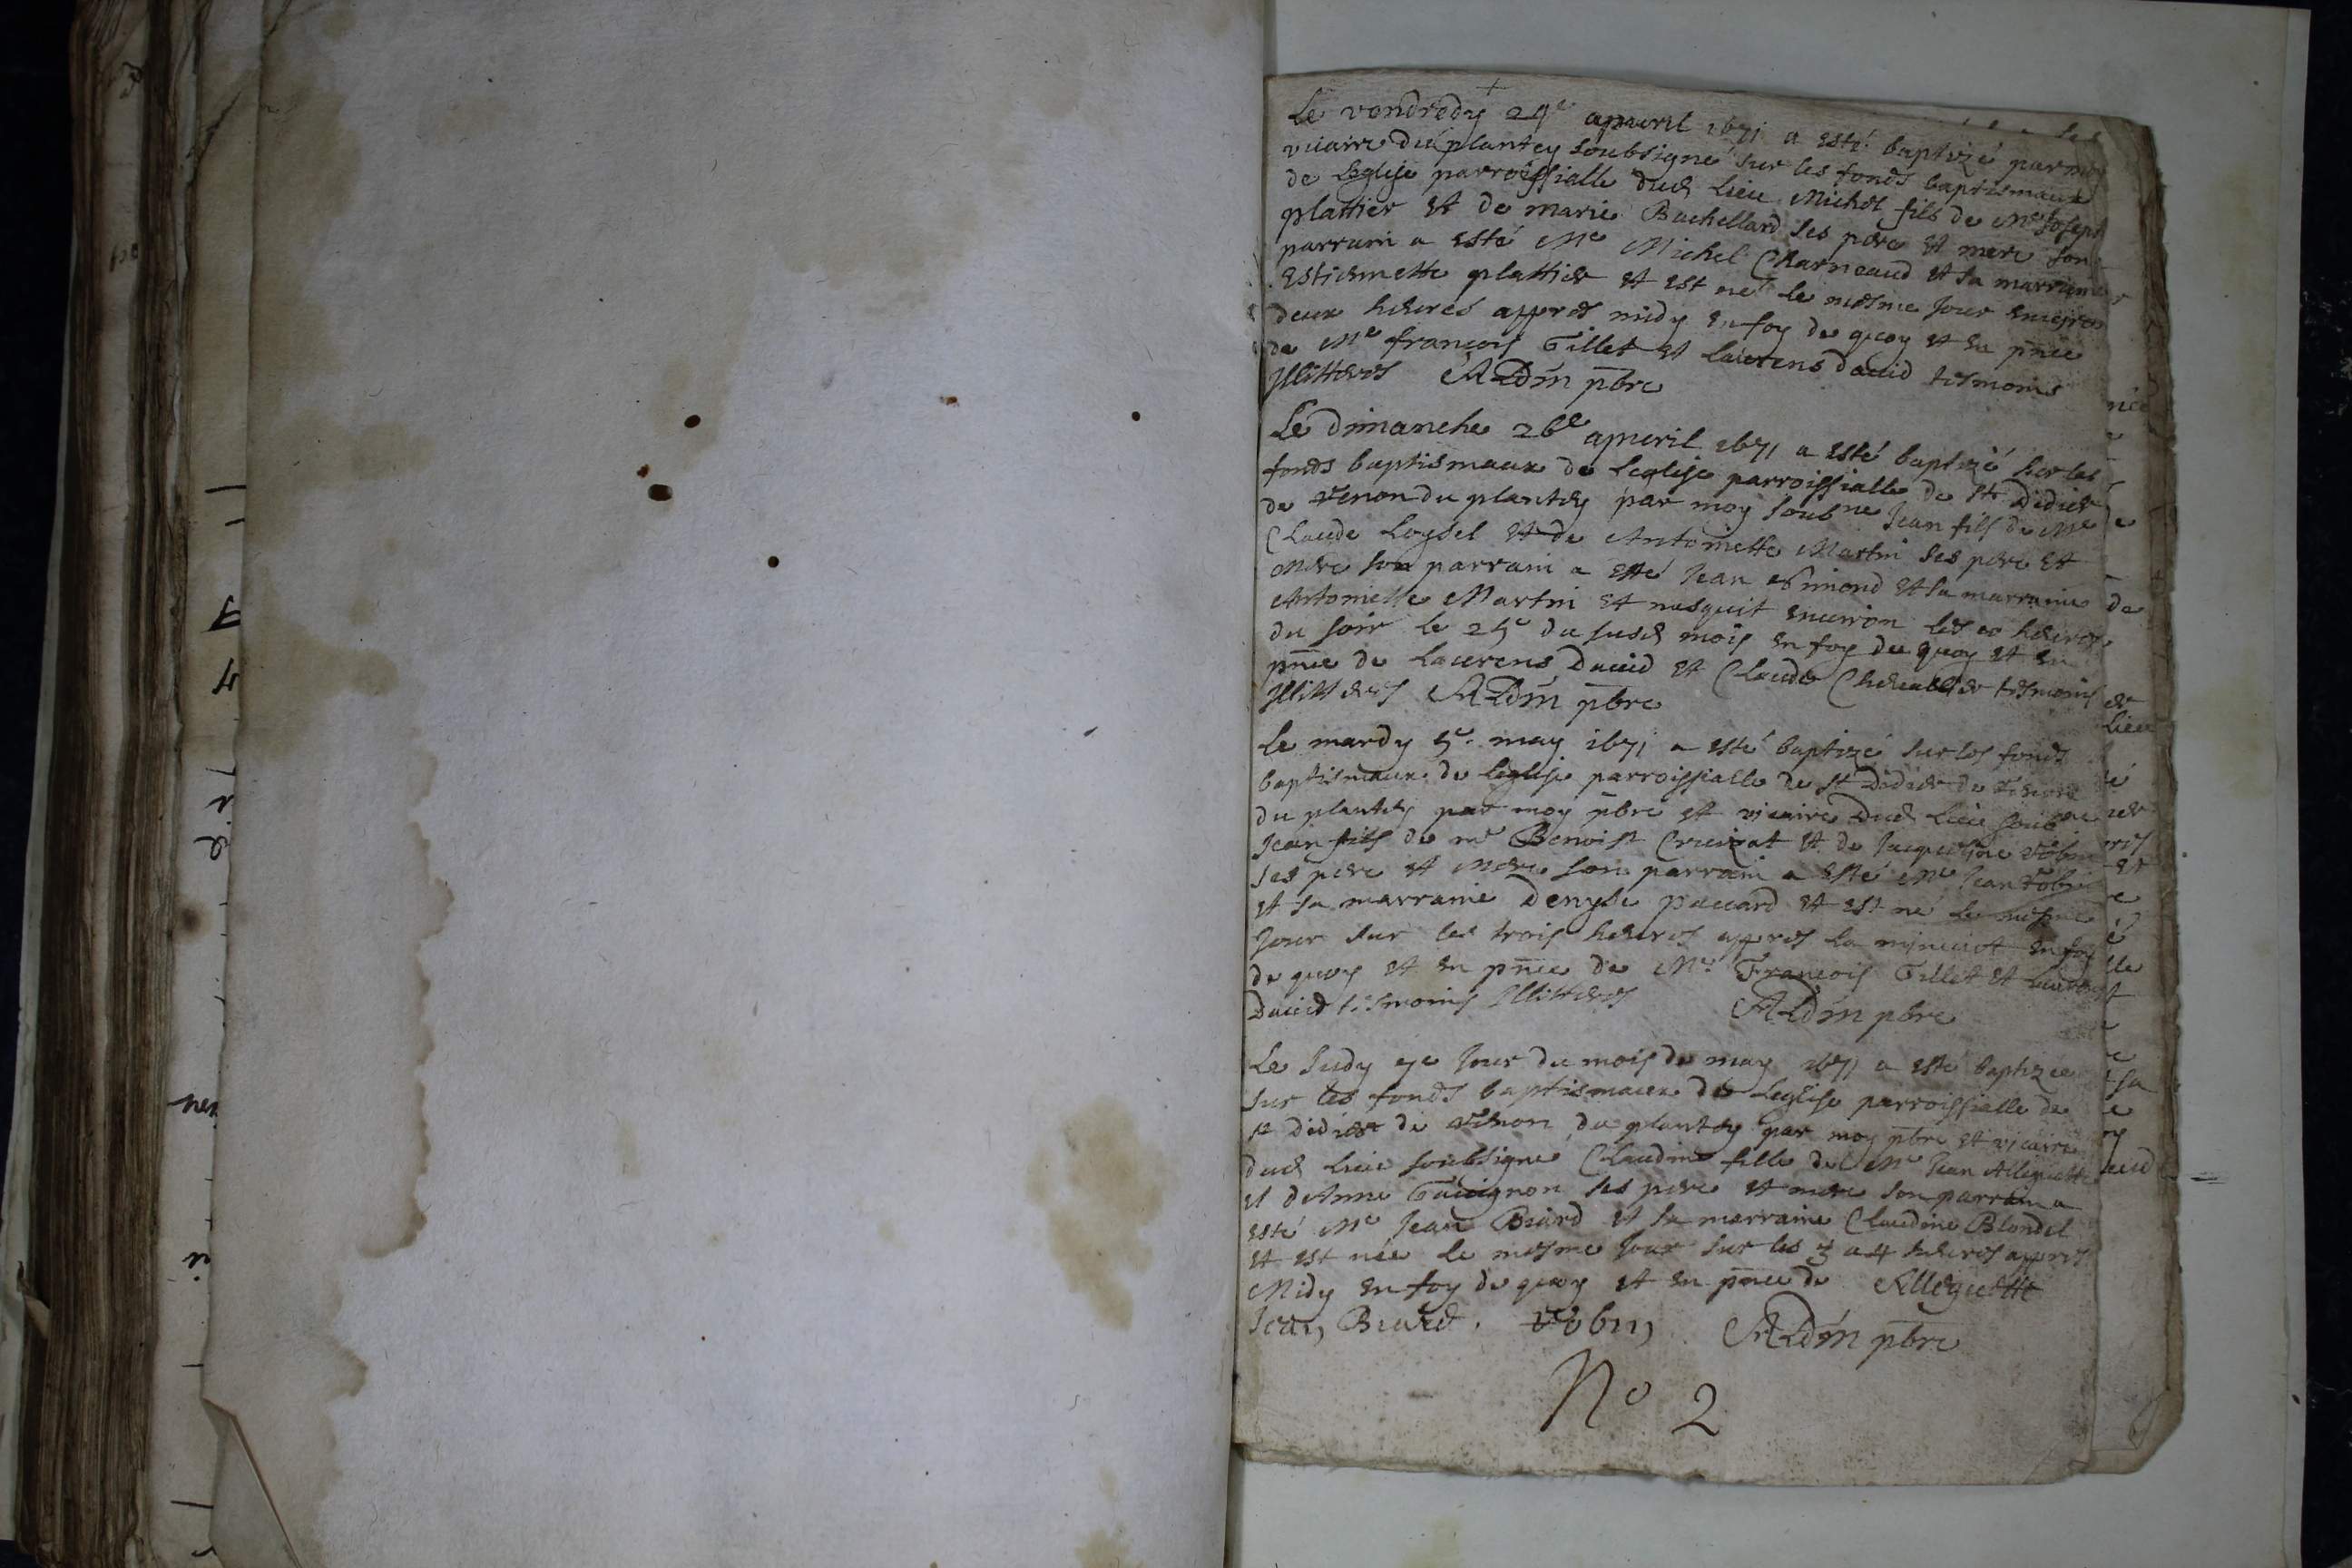 Le vendredy 24e apvuril 1671 a esté baptizé par moy
vicaire du plantey soubsigné sur les fonds baptismaux
de Leglise parroissialle dud lieu Michel fils de Me Joseph
plattier et de marie Bachellard ses pere et mere son
parrain a esté Me Michel Charneaud et sa marraine
Estiennette plattier et est né le mesme jour environ
deux heures appres midy en foy de quoy et en pnce
de Me françois Tillet et Laurens david tesmoins
Illitteres ADm pbre
Le dimanche 26e apvril 1671 a esté baptizé sur les
fonds baptismaux de Leglise parroissialle de st Didier
de Venon du plantey par moy soubne Jean fils de Me
Claude Loysel et de Antoinette Martin ses pere et
mere son parrain a esté Jean et sa marraine
Antoinette Martin et nasquit environ les 10 heures
du soir le 25e du susd mois en foy de quoy et en
pnce de Laurens David et Claude Chevallier tesmoins
Illitteres ADm pbre
Le mardy 5e may 1671 a esté baptizé sur les fonds
baptismaux de Leglise parroissialle de st Didier de
du plantey par moy pbre et vicaire Dud Lieu soubne
Jean fils de me Benoist Cruizat et de Jacquesme Robin
ses pere et mere son parrain a esté Me Jean Robin
et sa marraine Denyse paccard et est né le mesme
jour sur les trois heures appres la minuict en foy
de quoy et en pnce de Me François Tillet et Laurent
David tesmoins Illitteres ADm pbre
Le Judy 7e Jour du mois de may 1671 a esté baptizée
sur les fonds baptismaux de Leglise parroissialle de
st Didier de Venon du plantey par moy pbre et vicaire
dud lieu soubsigné Claudine fille de Me Jean Alleguette
et dAnne ses pere et mere son parrain a
esté Me Jean Biard et sa marraine Claudine Blondel
et est née le mesme jour sur les 3 a 4 heures appres
Midy en foy de quoy et en pnce de Alleguette
Jean Biard. Robin ADm pbre
No 2